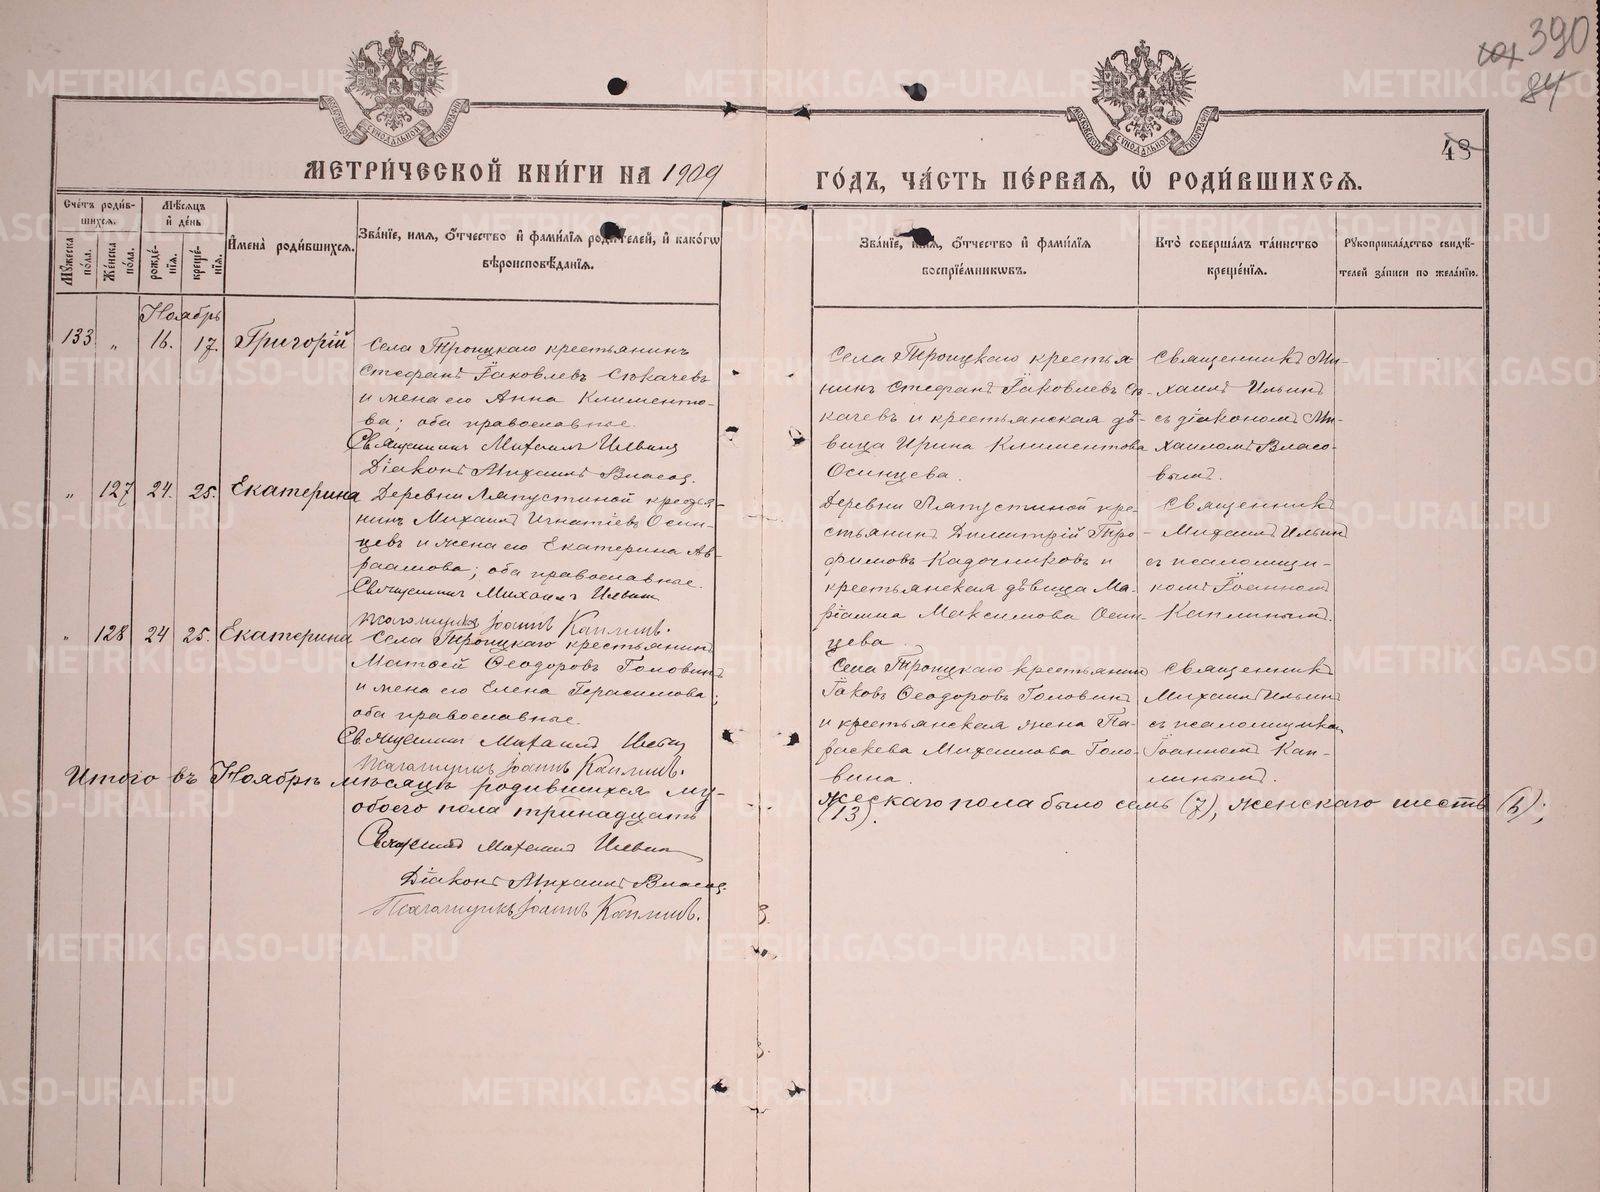 390
84
48
МОСКОВСКОЙ СѴНОДАЛЬНОЙ ТИПОГРАФІИ
МОСКОВСКОЙ СѴНОДАЛЬНОЙ ТИПОГРАФІИ
МЕТРИ́ЧЕСКОЙ КНИ́ГИ НА 1909
ГОДЪ, ЧА́СТЬ ПЕ́РВАЯ, Ѡ҆ РОДИ́ВШИХСЯ.
Сче́тъ роди́в-
шихся.
Мꙋ́жеска по́ла.
Же́нска по́ла.
Мѣ́сяцъ
и҆ де́нь
рожде́-
нїя.
креще́-
нїя.
И҆мена̀ роди́вшихся.
Зва́нїе, имя, ѻ҆́тчество и҆ фами́лїя роди́телей, и҆ како́гѡ
вѣроисповѣ́данїя.
Зва́нїе, имя, ѻ҆́тчество и҆ фами́лїя
воспрїе́мникѡвъ.
Кто̀ соверша́лъ та́инство
креще́нїя.
Рꙋкоприкла́дство свидѣ́-
телей за́писи по жела́нїю.
Ноябрь
133 „ 16. 17. Григорій
Села Троицкаго крестьянинъ
Стефанъ Іаковлевъ Сюкачевъ
и жена его Анна Климентo-
ва; оба православные.
Священникъ Михаилъ Ильинъ
Діаконъ Михаилъ Власов.
Села Троицкаго крестья
нинъ Стефанъ Іаковлевъ Сю-
качевъ и крестьянская дѣ-
вица Ирина Климентова
Осинцева.
Священникъ Ми-
хаилъ Ильинъ
съ діакономъ Ми-
хаиломъ Власо-
вымъ.
„ 127 24. 25. Екатерина
Деревни Ляпустиной крестья
нинъ Михаилъ Игнатіевъ Осин-
цевъ и жена его Екатерина Ав-
раамова; оба православные.
Священникъ Михаилъ Ильинъ
Псаломщикъ Іоаннъ Каплинъ.
Деревни Ляпустиной кре-
стьянинъ Димитрій Тро-
фимовъ Кадочниковъ и
крестьянская дѣвица Ма-
ріанна Максимова Осин
цева
Священникъ
Михаилъ Ильинъ
съ псаломщи-
комъ Іоанномъ
Каплинымъ.
„ 128 24 25. Екатерина
Села Троицкаго крестьянинъ
Матѳей Ѳеодоровъ Головинъ
и жена его Елена Герасимова;
оба православные.
Священникъ Михаилъ Ильинъ
Псаломщикъ Іоаннъ Каплинъ.
Села Троицкаго крестьянинъ
Іаковъ Ѳеодоровъ Головинъ
и крестьянская жена Па-
раскева Михаилова Голо-
вина.
Священникъ
Михаилъ Ильинъ
съ псаломщикомъ
Іоанномъ Кап-
линымъ.
Итого въ Ноябрѣ мѣсяцѣ родившихся му-
жескаго пола было семь (7), женскаго шесть (6);
обоего пола тринадцать (13).
Священникъ Михаилъ Ильинъ
Діаконъ Михаилъ Власов.
Псаломщикъ Іоаннъ Каплинъ.
METRIKI.GASO-URAL.RU